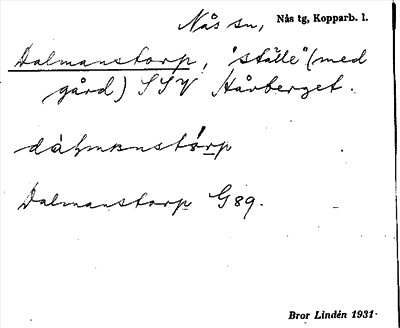 Nås sn, Nås tg, Kopparb. l.
Dalmanstorp, "ställe" (med
gård) SSV Håvberget.
Dalmanstorp G89.
Bror Lindén 1931·